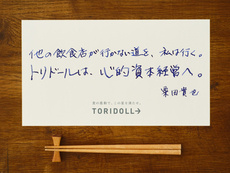 他の飲食店が行かない道を、私は行く。
トリドールは、心的資本経営へ。
粟田貴也
TORIDOLL